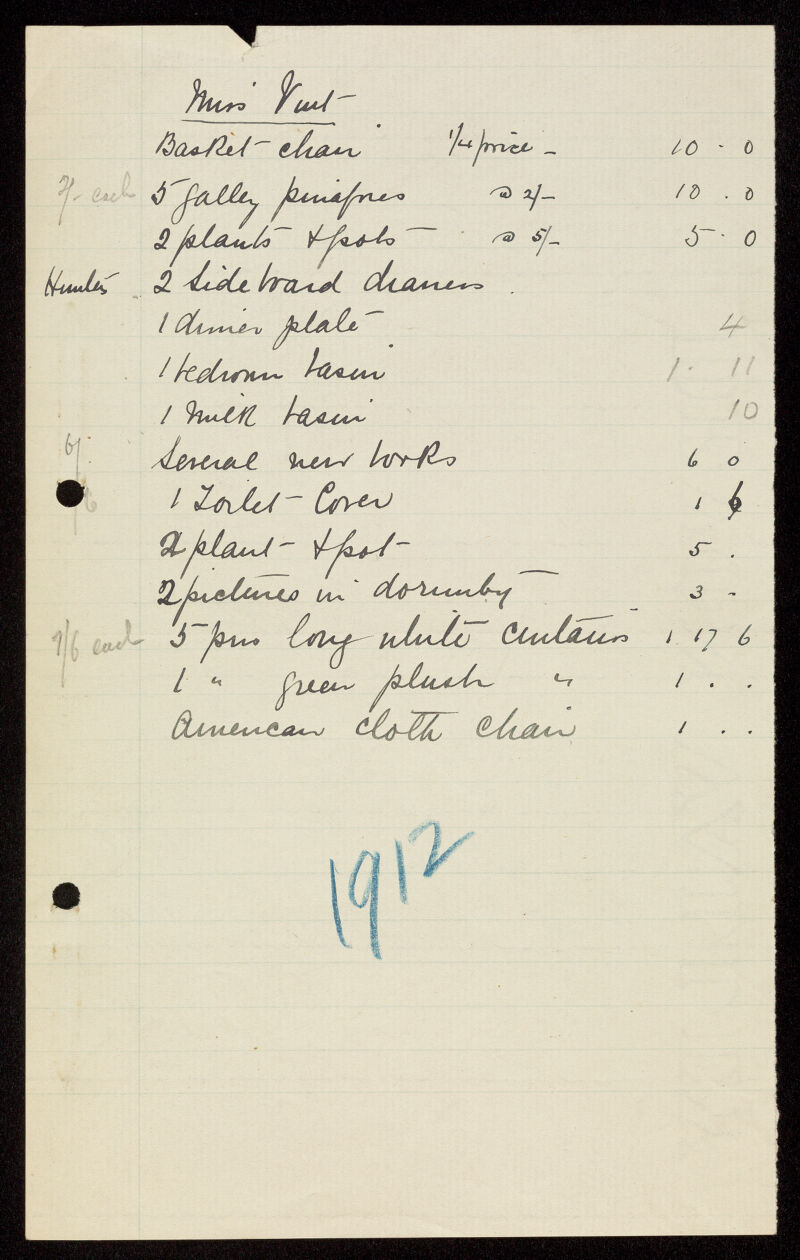 Miss Vint
Basket chair 1/4 price - 10 - 0
2/- each 5 galley pinafores @ 2/- 10 . 0
2 plants & pots @ 5/- 5 . 0
2 sideboard drawers
1 dinner plate 4
1 bedroom basin 1 . 11
1 milk basin 10
6/- Several new books 6 0
1 Toilet Cover 1 6
2 plant & pot 5 .
2 pictures in dormitory 3 -
7/6 each 5 prs long white curtains 1 17 6
1 " green plush " 1 . .
American cloth chair 1 . .
1912